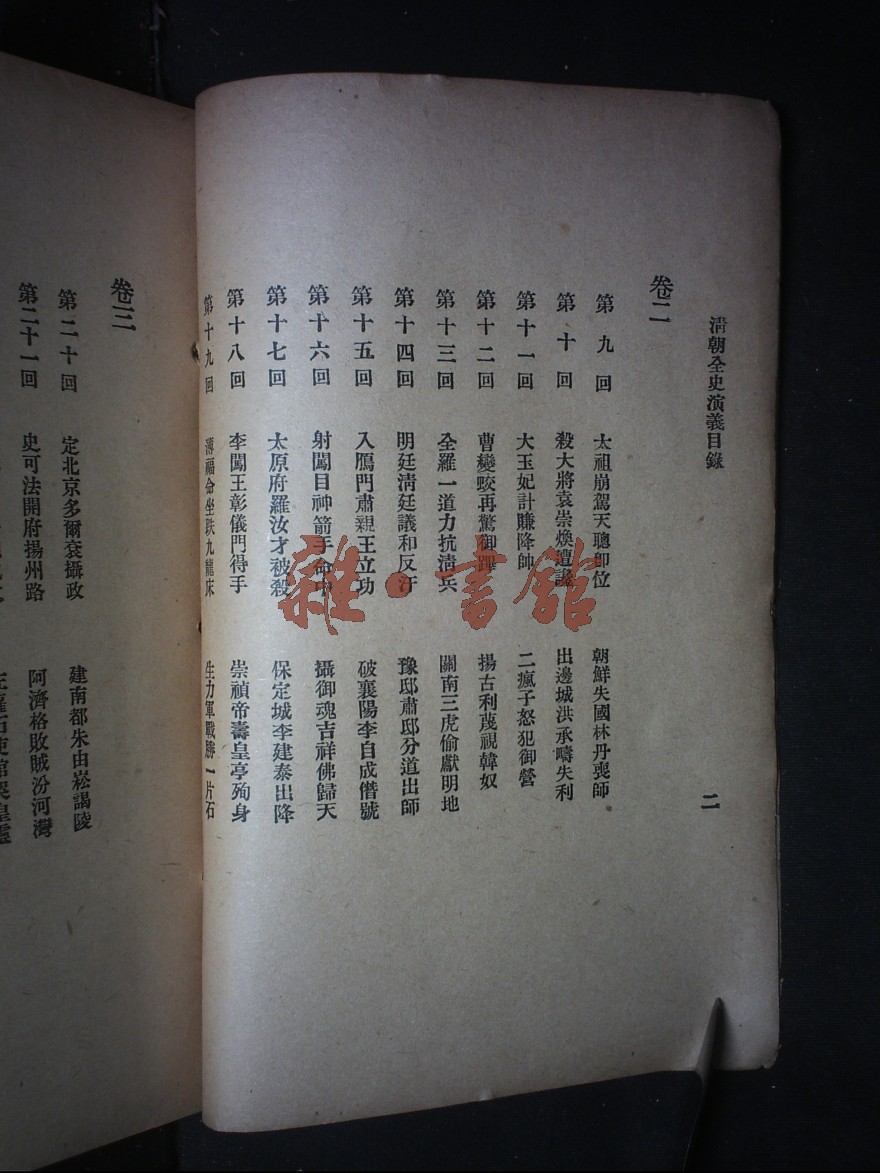 清朝全史演義目錄
二
卷二
第九回 太祖崩駕天聰卽位 朝鮮失國林丹喪師
第十回 殺大將袁崇煥遭讒 出邊城洪承疇失利
第十一回 大玉妃計賺降帥 二瘋子怒犯御營
第十二回 曹變蛟再驚御蹕 揚古利蔑視韓奴
第十三回 全羅一道力抗淸兵 關南三虎偷獻明地
第十四回 明廷淸廷議和反汗 豫邸肅邸分道出師
第十五回 入鴈門肅親王立功 破襄陽李自成僭號
第十六回 射闖目神箭手命中 攝御魂吉祥佛歸天
第十七回 太原府羅汝才被殺 保定城李建泰出降
第十八回 李闖王彰儀門得手 崇禎帝壽皇亭殉身
第十九回 薄福命坐跌九龍床 生力軍戰勝一片石
卷三
第二十回 定北京多爾袞攝政 建南都朱由崧謁陵
第二十一回 史可法開府揚州路 阿濟格敗賊汾河灣
雜·書館